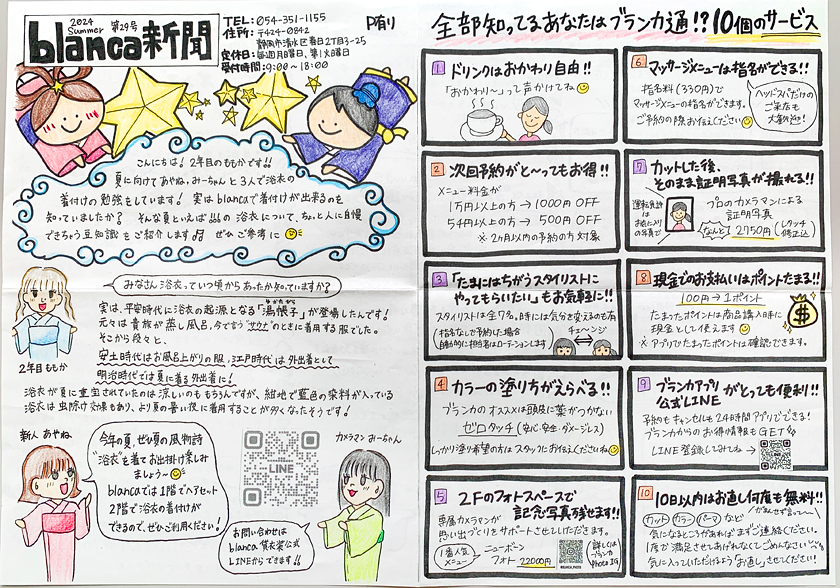 2024
Summer
第29号
blanca新聞
TEL:054-351-1155
住所:〒424-0842
静岡市清水区春日2丁目3-25
定休日:毎週月曜日、第1火曜日
受付時間:9:00~18:00
P有り
こんにちは!2年目のももかです!!
夏に向けてあやね、みーちゃんと3人で浴衣の
着付けの勉強をしています!実はblancaで着付けが出来るのを
知っていましたか?そんな夏といえば、、、の浴衣について、ちょっと人に自慢
できちゃう豆知識をご紹介します♬ぜひご参考に
みなさん浴衣っていつ頃からあったか知っていますか?
実は、平安時代に浴衣の起源となる「湯帷子」が登場したんです!
ゆかたびら
元々は貴族が蒸し風呂、今で言うサウナのときに着用する服でした。
そこから段々と、
安土時代はお風呂上がりの服、江戸時代は外出着として
明治時代では夏に着る外出着に!
2年目ももか
浴衣が夏に重宝されていたのは涼しいのももちろんですが、紺地で藍色の染料が入っている
浴衣は虫除け効果もあり、より夏の暑い夜に着用することが多くなったそうです!
新人 あやね
今年の夏、ぜひ夏の風物詩
"浴衣"を着てお出掛け楽しみ
ましょう~
blancaでは1階でヘアセット
2階で浴衣の着付けが
できるので、ぜひご利用ください!
LINE
カメラマン みーちゃん
お問い合わせは
blanca貸衣裳公式
LINEからできます!!
全部知ってるあなたはブランカ通!?10個のサービス
1 ドリンクはおかわり自由!!
「おかわり~」って声かけてね
2 次回予約がと~ってもお得!!
メニュー料金が
1万円以上の方→1000円OFF
54千円以上の方→500円OFF
※2ヶ月以内の予約の方対象
3 「たまにはちがうスタイリストに
やってもらいたい」もお気軽に!!
スタイリストは全7名。時には気分を変えるのも有
(指名なしで予約した場合
自動的に担当者はローテーションします)
チェ~ンジ
4 カラーの塗り方がえらべる!!
ブランカのオススメは頭皮に薬がつかない
ゼロタッチ(安心・安全・ダメージレス)
しっかり塗り希望の方はスタッフにお伝えくださいね
5 2Fのフォトスペースで
記念写真残せます!!
専属カメラマンが
思い出づくりをサポートさせていただきます。
1番人気
メニュー
ニューボーン
フォト 22000円
詳しくは
ブランカ
Photo IG
6 マッサージメニューは指名ができる!!
指名料(330円)で
マッサージメニューの指名ができます。
ご予約の際お伝えください
ヘッドスパだけの
ご来店も
大歓迎!!
7 カットした後、
そのまま証明写真が撮れる!!
運転免許は
お気に入り
の写真で
プロのカメラマンによる
証明写真
なんと 2750円(レタッチ
修正込)
8 現金でのお支払いはポイントたまる!!
100円→1ポイント
たまったポイントは商品購入時に
現金として使えます
※アプリでたまったポイントは確認できます。
9 ブランカアプリ
公式LINE がとっても便利!!
予約もキャンセルも24時間アプリでできる!
ブランカからのお得情報もGET
LINE登録してみてね→
10 10日以内はお直し何度も無料!!
カット カラー パーマ など
気になるところがあればまずご連絡ください。
1度で満足させてあげれなくてごめんなさい
気に入っていただけるようお直しさせてください。